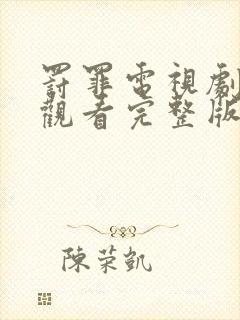 罸罪電視劇
觀看完整版
陳荣凱